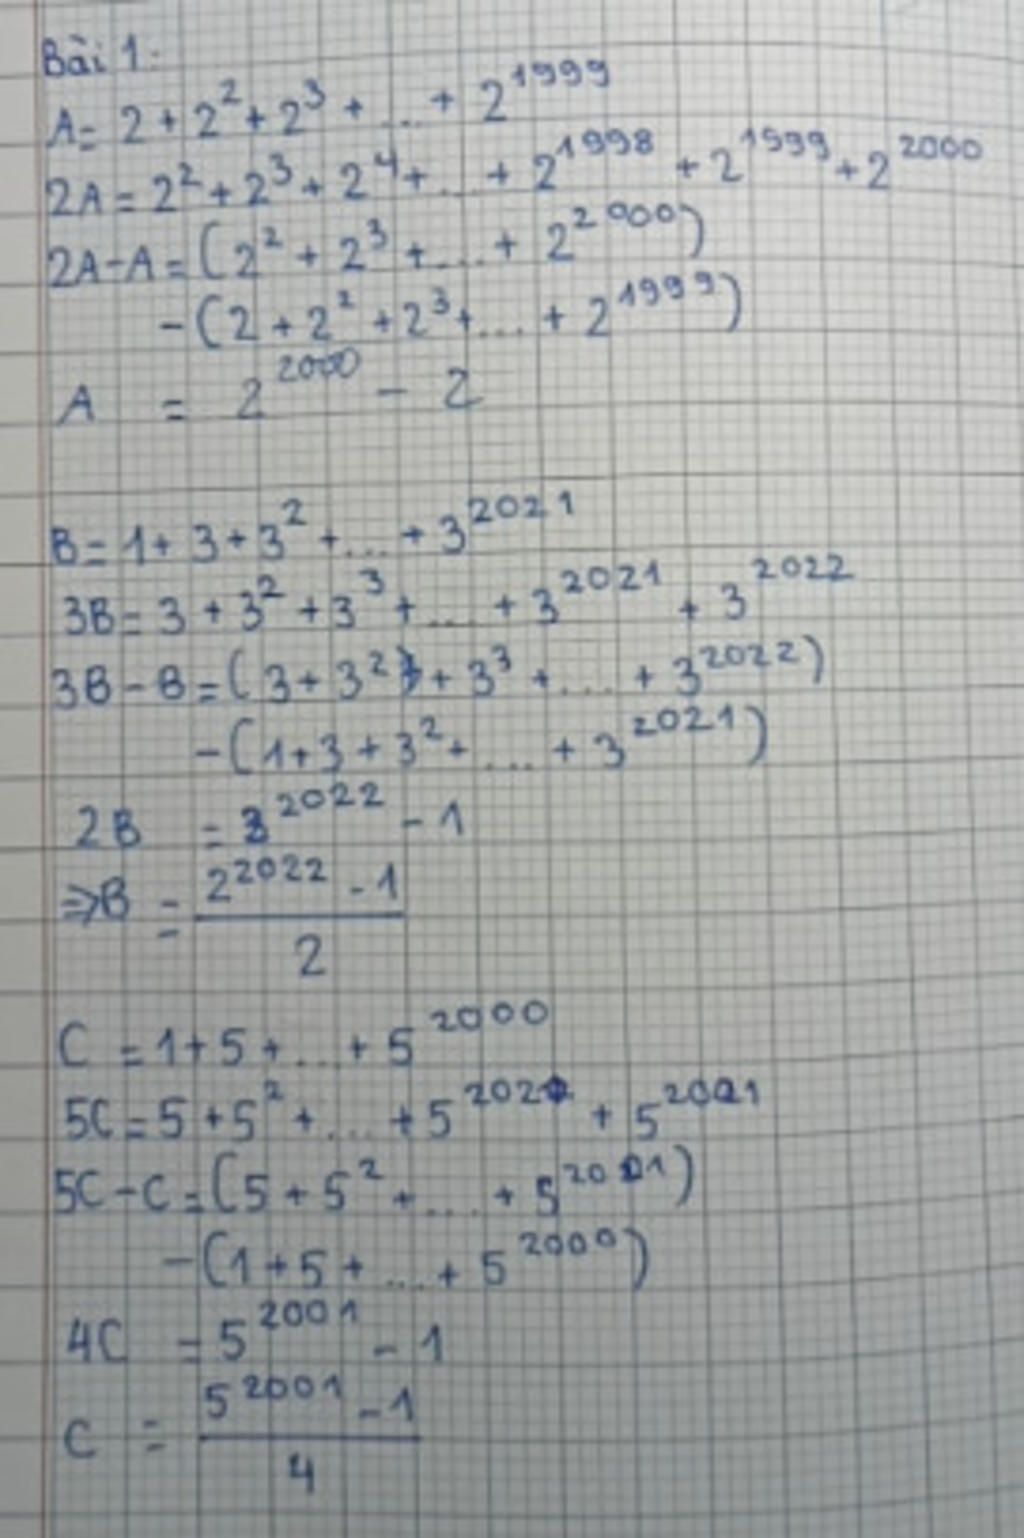 Bài 1:
A = 2 + 2² + 2³ + ... + 2¹⁹⁹⁹
2A = 2² + 2³ + 2⁴ + ... + 2¹⁹⁹⁸ + 2¹⁹⁹⁹ + 2²⁰⁰⁰
2A - A = (2² + 2³ + ... + 2²⁰⁰⁰)
- (2 + 2² + 2³ + ... + 2¹⁹⁹⁹)
A = 2²⁰⁰⁰ - 2
B = 1 + 3 + 3² + ... + 3²⁰²¹
3B = 3 + 3² + 3³ + ... + 3²⁰²¹ + 3²⁰²²
3B - B = (3 + 3² + 3³ + ... + 3²⁰²²)
- (1 + 3 + 3² + ... + 3²⁰²¹)
2B = 3²⁰²² - 1
⇒ B = (2²⁰²² - 1) / 2
C = 1 + 5 + ... + 5²⁰⁰⁰
5C = 5 + 5² + ... + 5 + 5²⁰⁰¹
5C - C = (5 + 5² + ... + 5²⁰⁰¹)
- (1 + 5 + ... + 5²⁰⁰⁰)
4C = 5²⁰⁰¹ - 1
C = (5²⁰⁰¹ - 1) / 4